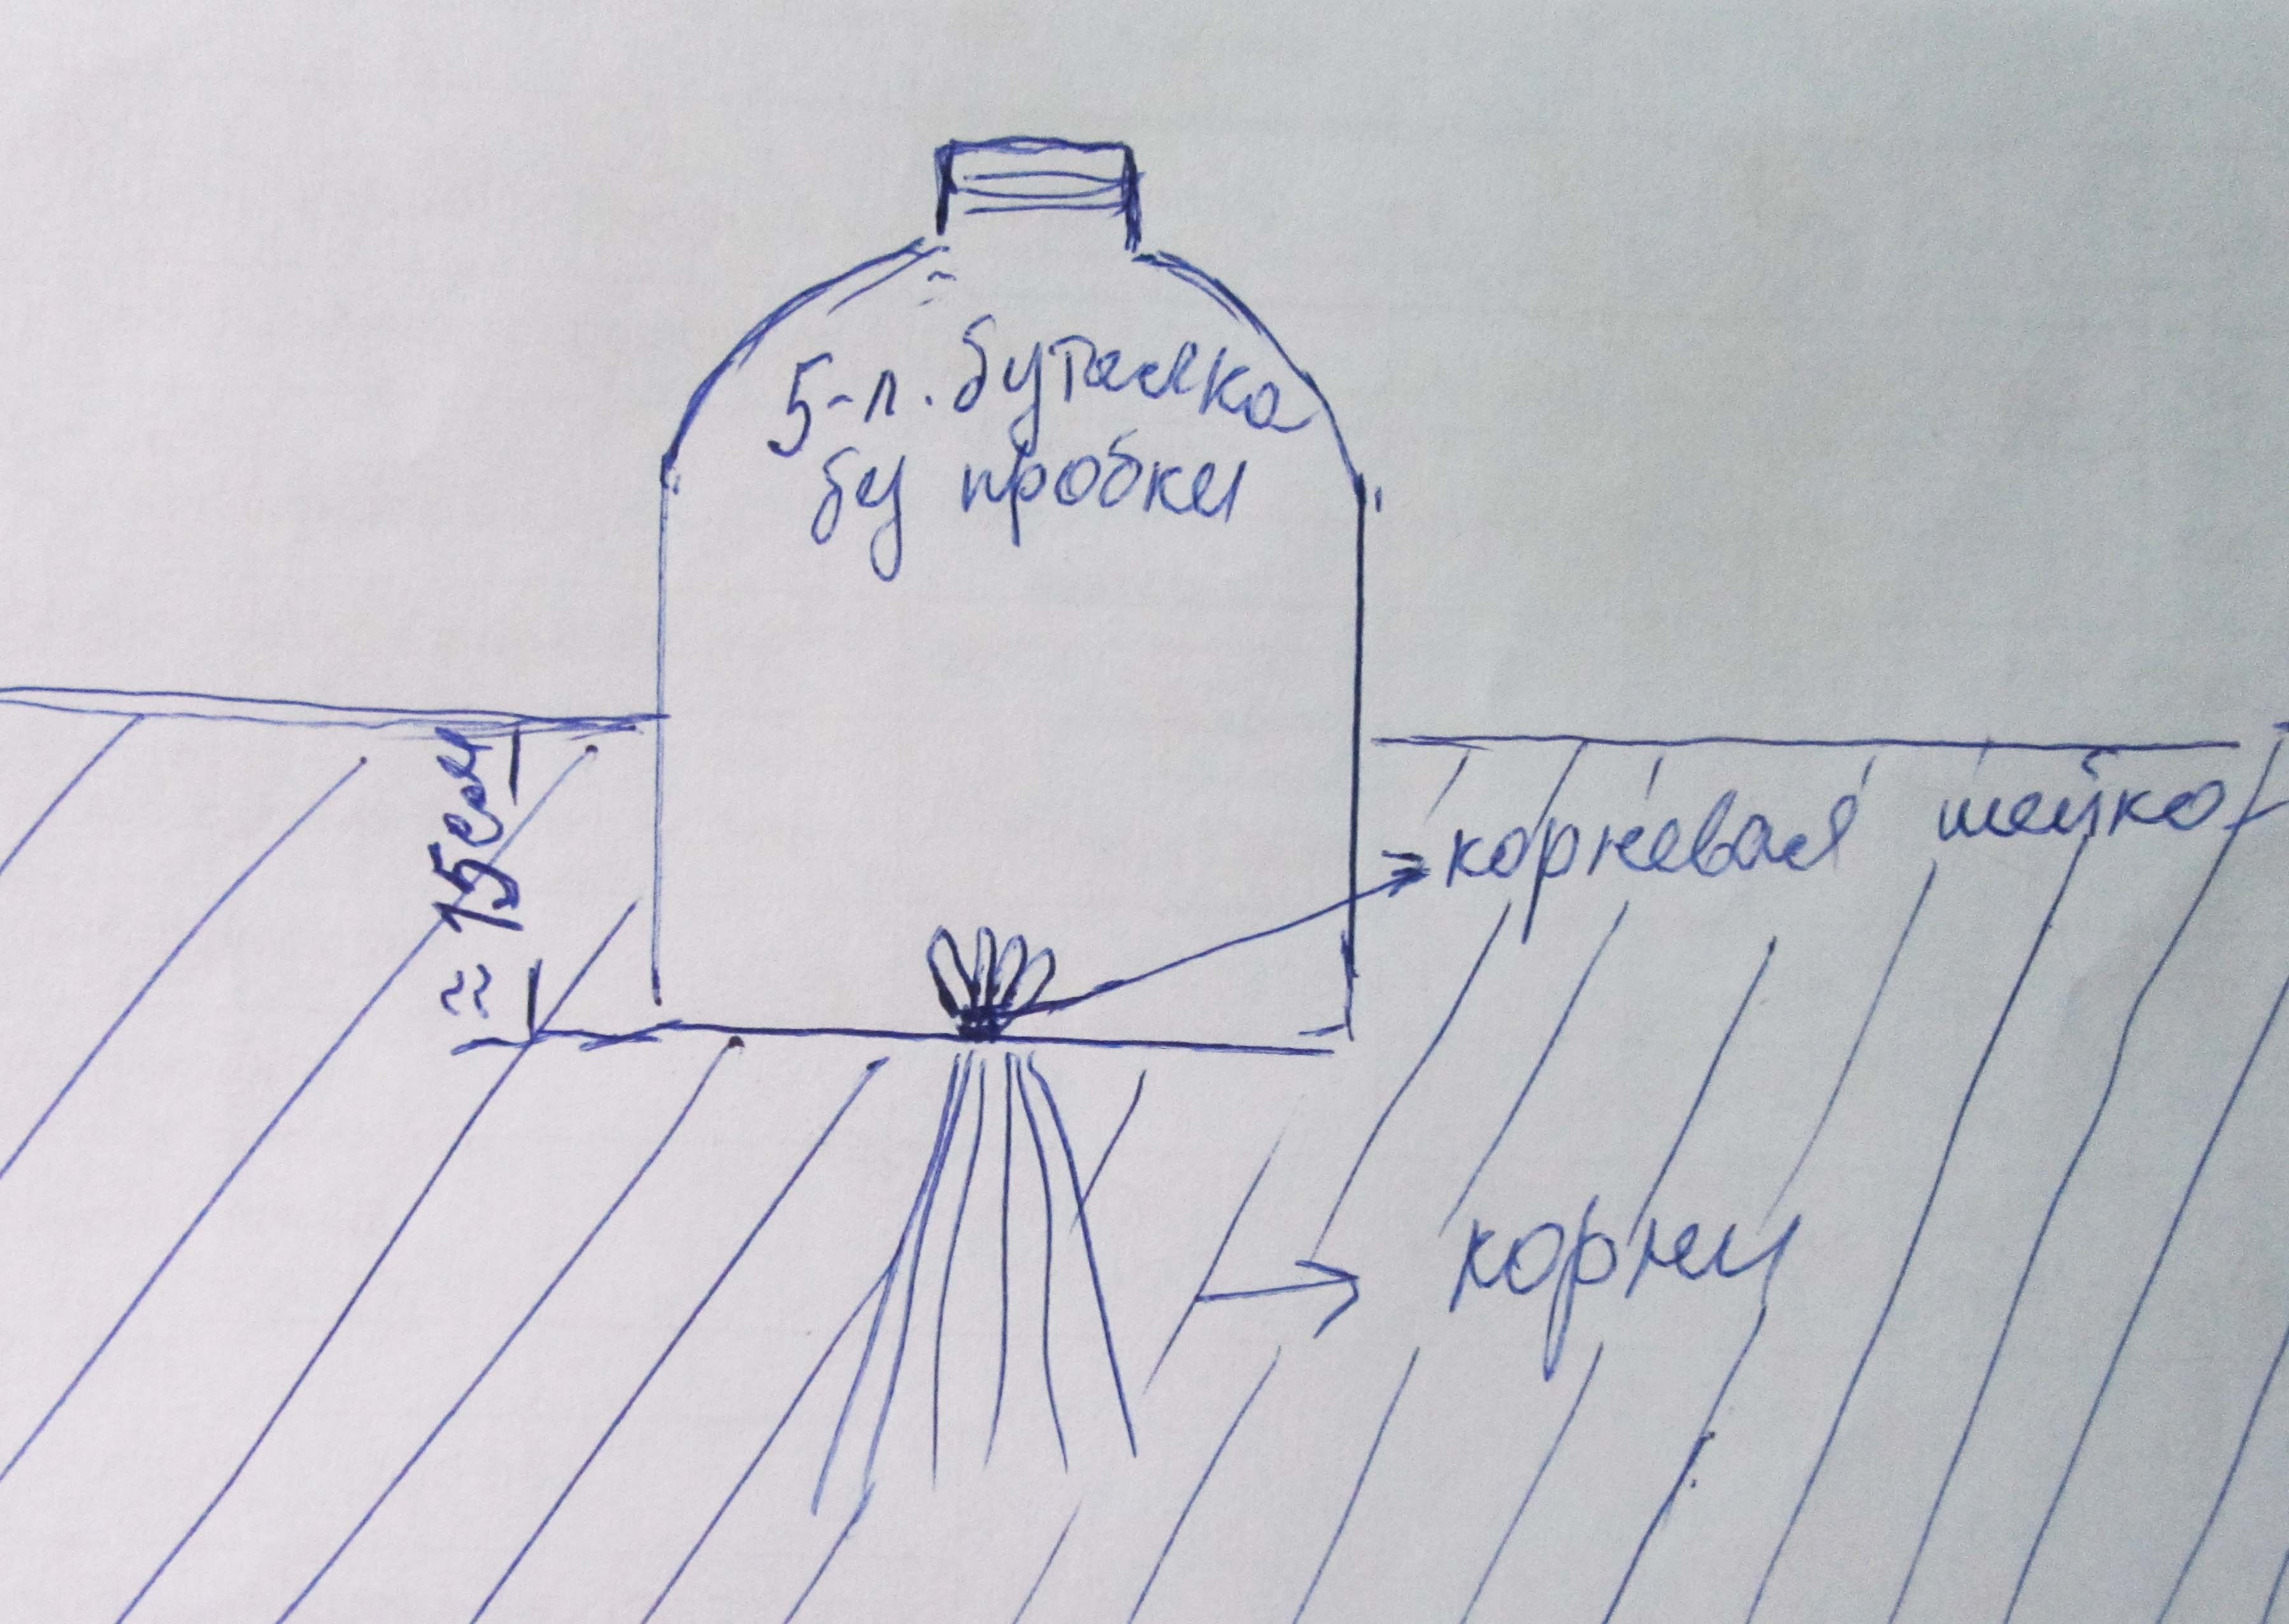 5-л. бутылка
без пробки
≈ 15см
корневая шейка
корни